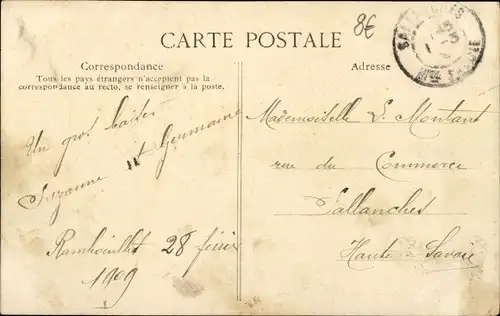 8€
CARTE POSTALE
Correspondance
Tous les pays étrangers n'acceptent pas la
correspondance au recto, se renseigner à la poste.
Un gros baiser
Suzanne et Germaine
Rambouillet 28
1909
Adresse
Mademoiselle L. Montant
rue du Commerce
Sallanches
Haute Savoie
SALLANCHES
Hte SAVOIE